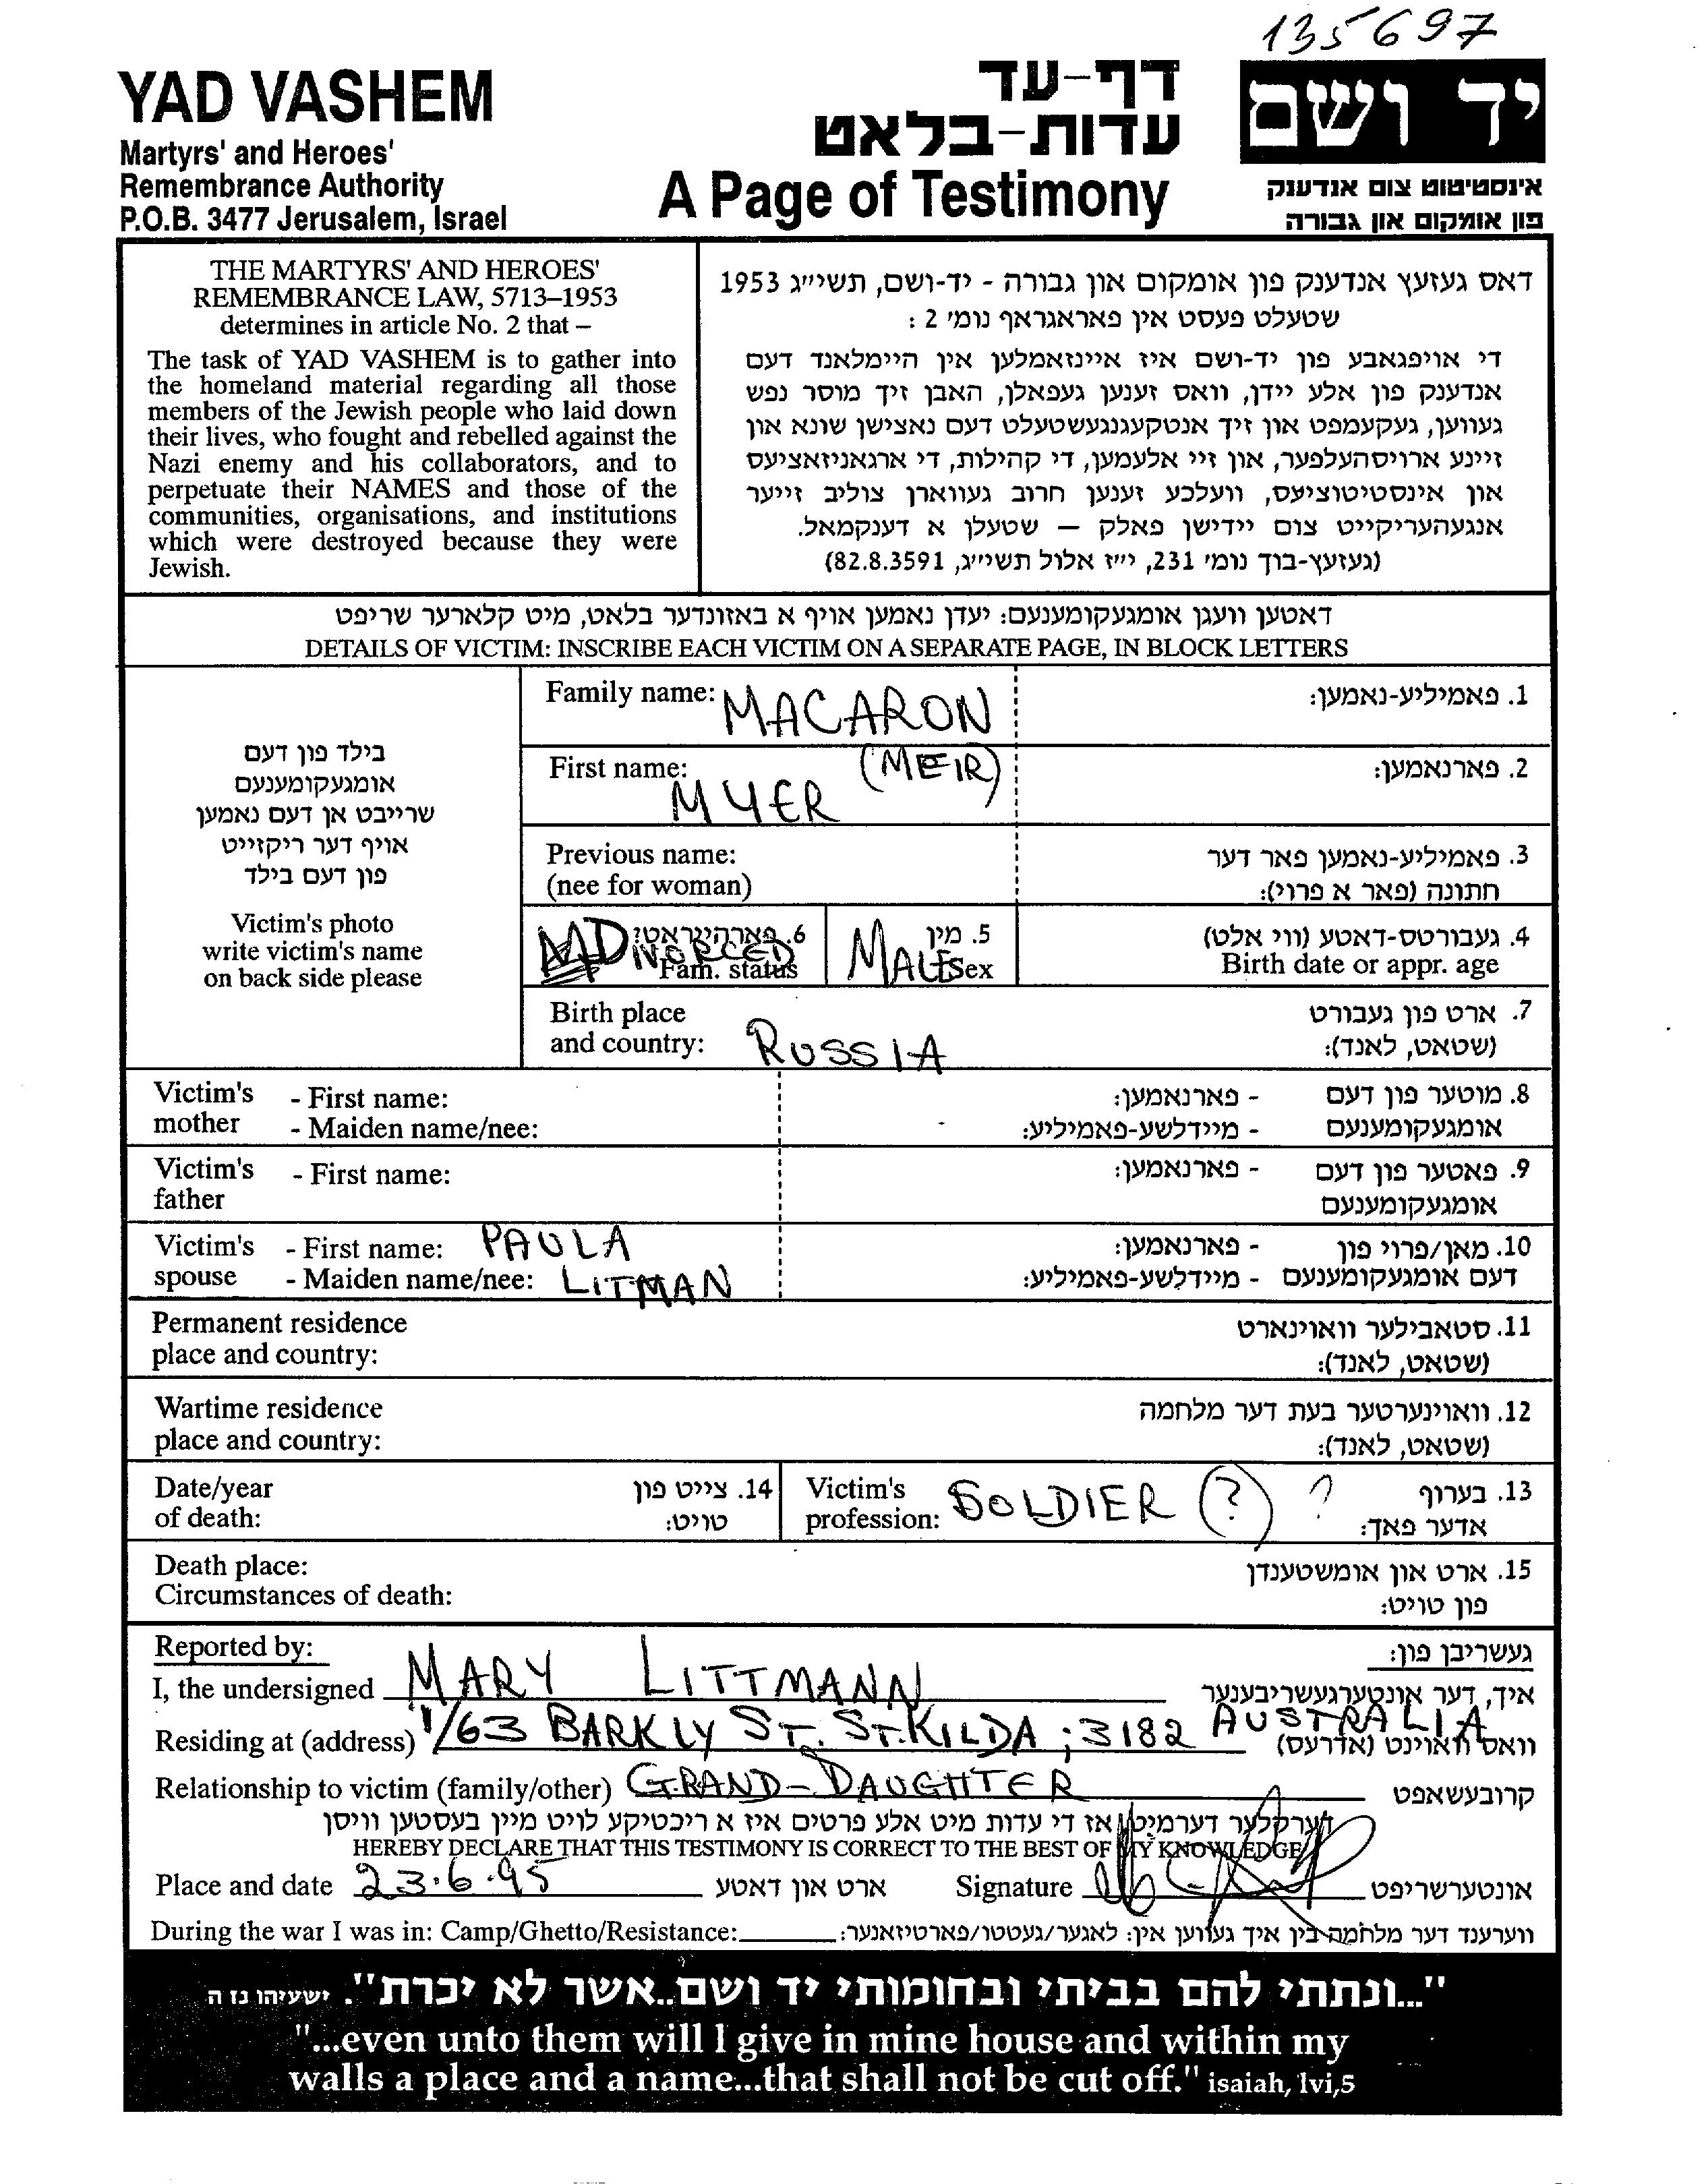 135697
YAD VASHEM
Martyrs' and Heroes'
Remembrance Authority
P.O.B. 3477 Jerusalem, Israel
דף-עד
עדות-בלאט
A Page of Testimony
יד ושם
אינסטיטוט צום אנדענק
פון אומקום און גבורה
THE MARTYRS' AND HEROES'
REMEMBRANCE LAW, 5713–1953
determines in article No. 2 that –
The task of YAD VASHEM is to gather into
the homeland material regarding all those
members of the Jewish people who laid down
their lives, who fought and rebelled against the
Nazi enemy and his collaborators, and to
perpetuate their NAMES and those of the
communities, organisations, and institutions
which were destroyed because they were
Jewish.
דאס געזעץ אנדענק פון אומקום און גבורה - יד-ושם, תשי״ג 1953
שטעלט פעסט אין פאראגראף נומ׳ 2 :
די אויפגאבע פון יד-ושם איז איינזאמלען אין היימלאנד דעם
אנדענק פון אלע יידן, וואס זענען געפאלן, האבן זיך מוסר נפש
געווען, געקעמפט און זיך אנטקעגנגעשטעלט דעם נאצישן שונא און
זיינע ארויסהעלפער, און זיי אלעמען, די קהילות, די ארגאניזאציעס
און אינסטיטוציעס, וועלכע זענען חרוב געווארן צוליב זייער
אנגעהעריקייט צום יידישן פאלק — שטעלן א דענקמאל.
(געזעץ-בוך נומ׳ 231, י״ז אלול תשי״ג, 82.8.3591)
דאטען וועגן אומגעקומענעם: יעדן נאמען אויף א באזונדער בלאט, מיט קלארער שריפט
DETAILS OF VICTIM: INSCRIBE EACH VICTIM ON A SEPARATE PAGE, IN BLOCK LETTERS
בילד פון דעם
אומגעקומענעם
שרייבט אן דעם נאמען
אויף דער ריקזייט
פון דעם בילד
Victim's photo
write victim's name
on back side please
Family name: MACARON 1. פאמיליע-נאמען:
First name: MYER (MEIR) 2. פארנאמען:
Previous name: 3. פאמיליע-נאמען פאר דער
(nee for woman) חתונה (פאר א פרוי):
DIVORCED 6. פארהייראט: MALE 5. מין 4. געבורטס-דאטע (ווי אלט)
Fam. status Sex Birth date or appr. age
Birth place 7. ארט פון געבורט
and country: RUSSIA (שטאט, לאנד):
Victim's - First name: - פארנאמען: 8. מוטער פון דעם
mother - Maiden name/nee: - מיידלשע-פאמיליע: אומגעקומענעם
Victim's - First name: - פארנאמען: 9. פאטער פון דעם
father אומגעקומענעם
Victim's - First name: PAULA - פארנאמען: 10. מאן/פרוי פון
spouse - Maiden name/nee: LITMAN - מיידלשע-פאמיליע: דעם אומגעקומענעם
Permanent residence 11. סטאבילער וואוינארט
place and country: (שטאט, לאנד):
Wartime residence 12. וואוינערטער בעת דער מלחמה
place and country: (שטאט, לאנד):
Date/year 14. צייט פון Victim's SOLDIER (?) ? 13. בערוף
of death: טויט: profession: אדער פאך:
Death place: 15. ארט און אומשטענדן
Circumstances of death: פון טויט:
Reported by: געשריבן פון:
I, the undersigned MARY LITTMANN איך, דער אונטערגעשריבענער
Residing at (address) 1/63 BARKLY ST. ST. KILDA ; 3182 AUSTRALIA וואס וואוינט (אדרעס)
Relationship to victim (family/other) GRAND-DAUGHTER קרובעשאפט
דערקלער דערמיט אז די עדות מיט אלע פרטים איז א ריכטיקע לויט מיין בעסטען וויסן
HEREBY DECLARE THAT THIS TESTIMONY IS CORRECT TO THE BEST OF MY KNOWLEDGE
Place and date 23.6.95 ארט און דאטע Signature אונטערשריפט
During the war I was in: Camp/Ghetto/Resistance: ווערענד דער מלחמה בין איך געווען אין: לאגער/געטטו/פארטיזאנער:
"...ונתתי להם בביתי ובחומותי יד ושם..אשר לא יכרת". ישעיהו נז ה
"...even unto them will I give in mine house and within my
walls a place and a name...that shall not be cut off." isaiah, lvi,5